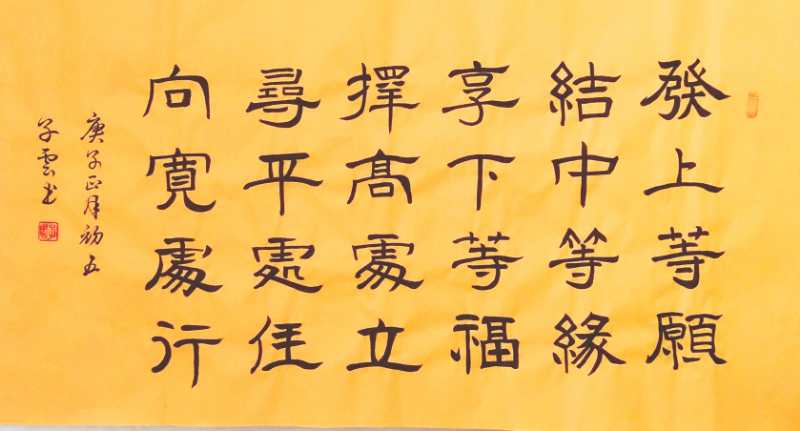 發上等願
結中等緣
享下等福
擇高處立
尋平處住
向寬處行
庚子正月初五
子雲書